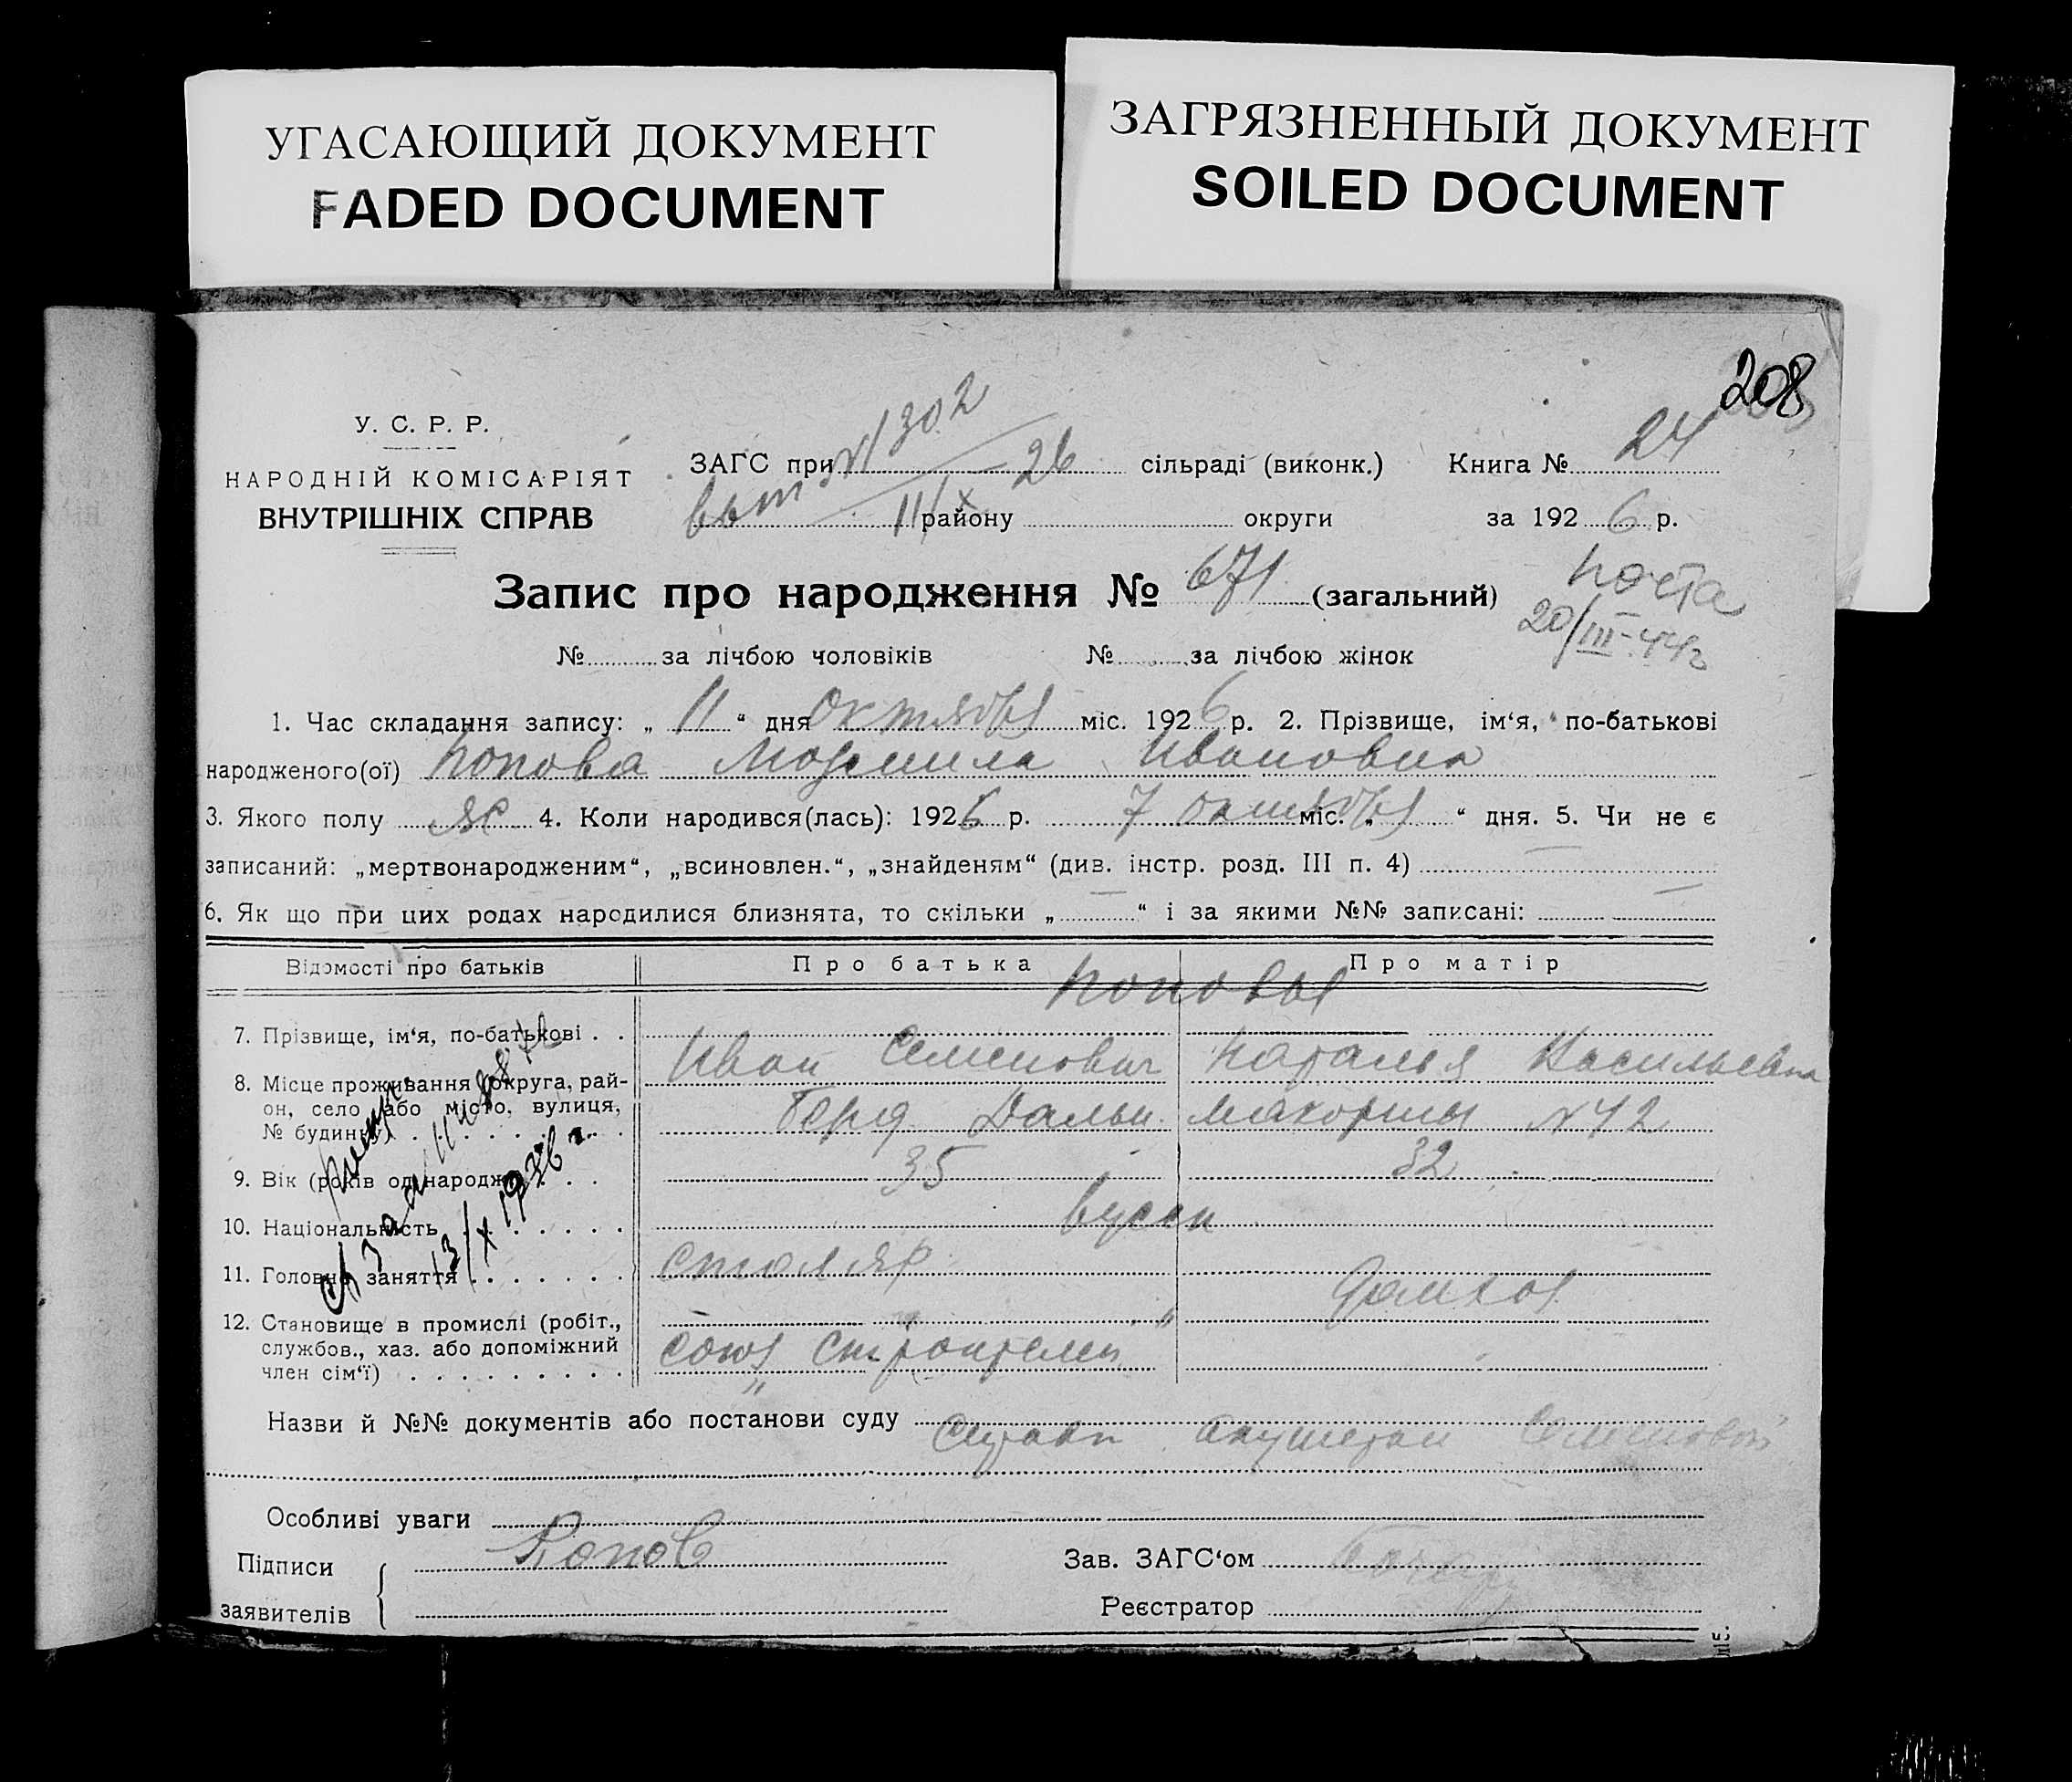 УГАСАЮЩИЙ ДОКУМЕНТ
FADED DOCUMENT
ЗАГРЯЗНЕННЫЙ ДОКУМЕНТ
SOILED DOCUMENT
208
У. С. Р. Р.
НАРОДНІЙ КОМІСАРІЯТ
ВНУТРІШНІХ СПРАВ
ЗАГС при N 1302 26 сільраді (виконк.) Книга № 24
вып 11/X району округи за 1926 р.
Запис про народження № 671 (загальний)
20/III-44г
№ за лічбою чоловіків № за лічбою жінок
1. Час складання запису: „ 11 “ дня Октября міс. 1926 р. 2. Прізвище, ім‘я, по-батькові
народженого(ої) Попова Людмила Ивановна
3. Якого полу ж 4. Коли народився(лась): 1926 р. 7 октября міс. „ “ дня. 5. Чи не є
записаний: „мертвонародженим“, „всиновлен.“, „знайденям“ (див. інстр. розд. III п. 4)
6. Як що при цих родах народилися близнята, то скільки „ “ і за якими №№ записані:
Відомості про батьків Про батька Про матір
Поповы
7. Прізвище, ім‘я, по-батькові . .
Иван Семенович Наталья Васильевна
8. Місце проживання (округа, район, село або місто, вулиця, № будинку)
Дальн. N 42
9. Вік (років од народж. 35 32
10. Національність
11. Головне заняття столяр
домхоз
12. Становище в промислі (робіт., службов., хаз. або допоміжний член сім‘ї)
союз строителей
Назви й №№ документів або постанови суду
справки акушерки
13/X 1926 г.
Особливі уваги
Підписи Попов Зав. ЗАГС‘ом
заявителів Реєстратор